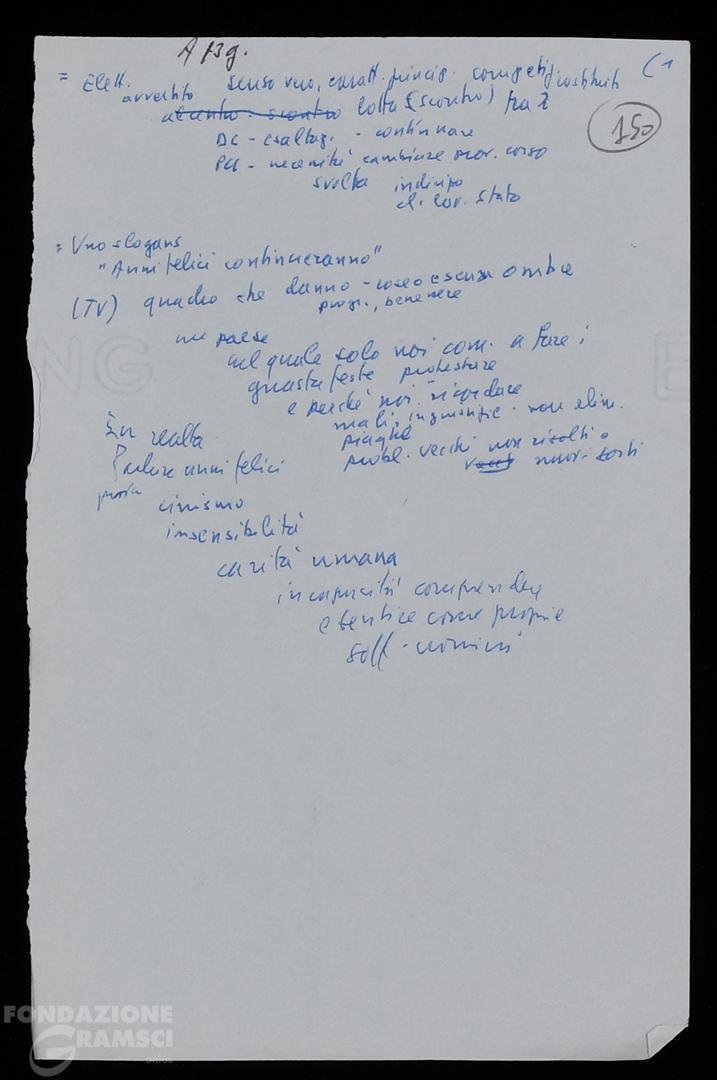 A 13g.
(1
150
= Elett.
avvertito senso vero, caratt. princip. competiz. costituiti
lotta (scontro) tra 2
DC - esaltaz. - continuare
PCI - necessità cambiare corso
svolta indirizzo
di gov. Stato
= Uno slogans
"Anni felici continueranno"
(TV) quadro che danno - roseo e senza ombre
progr., benessere
un paese
nel quale solo noi com. a fare i
guastafeste protestare
e perché noi ricordare
mali, ingiustizie - non elim.
piaghe
probl. vecchi non risolti o
nuovi sorti
In realtà
Parlare anni felici
prova cinismo
insensibilità
carità umana
incapacità comprendere
e sentire come proprie
soff - uomini
FONDAZIONE
GRAMSCI
onlus